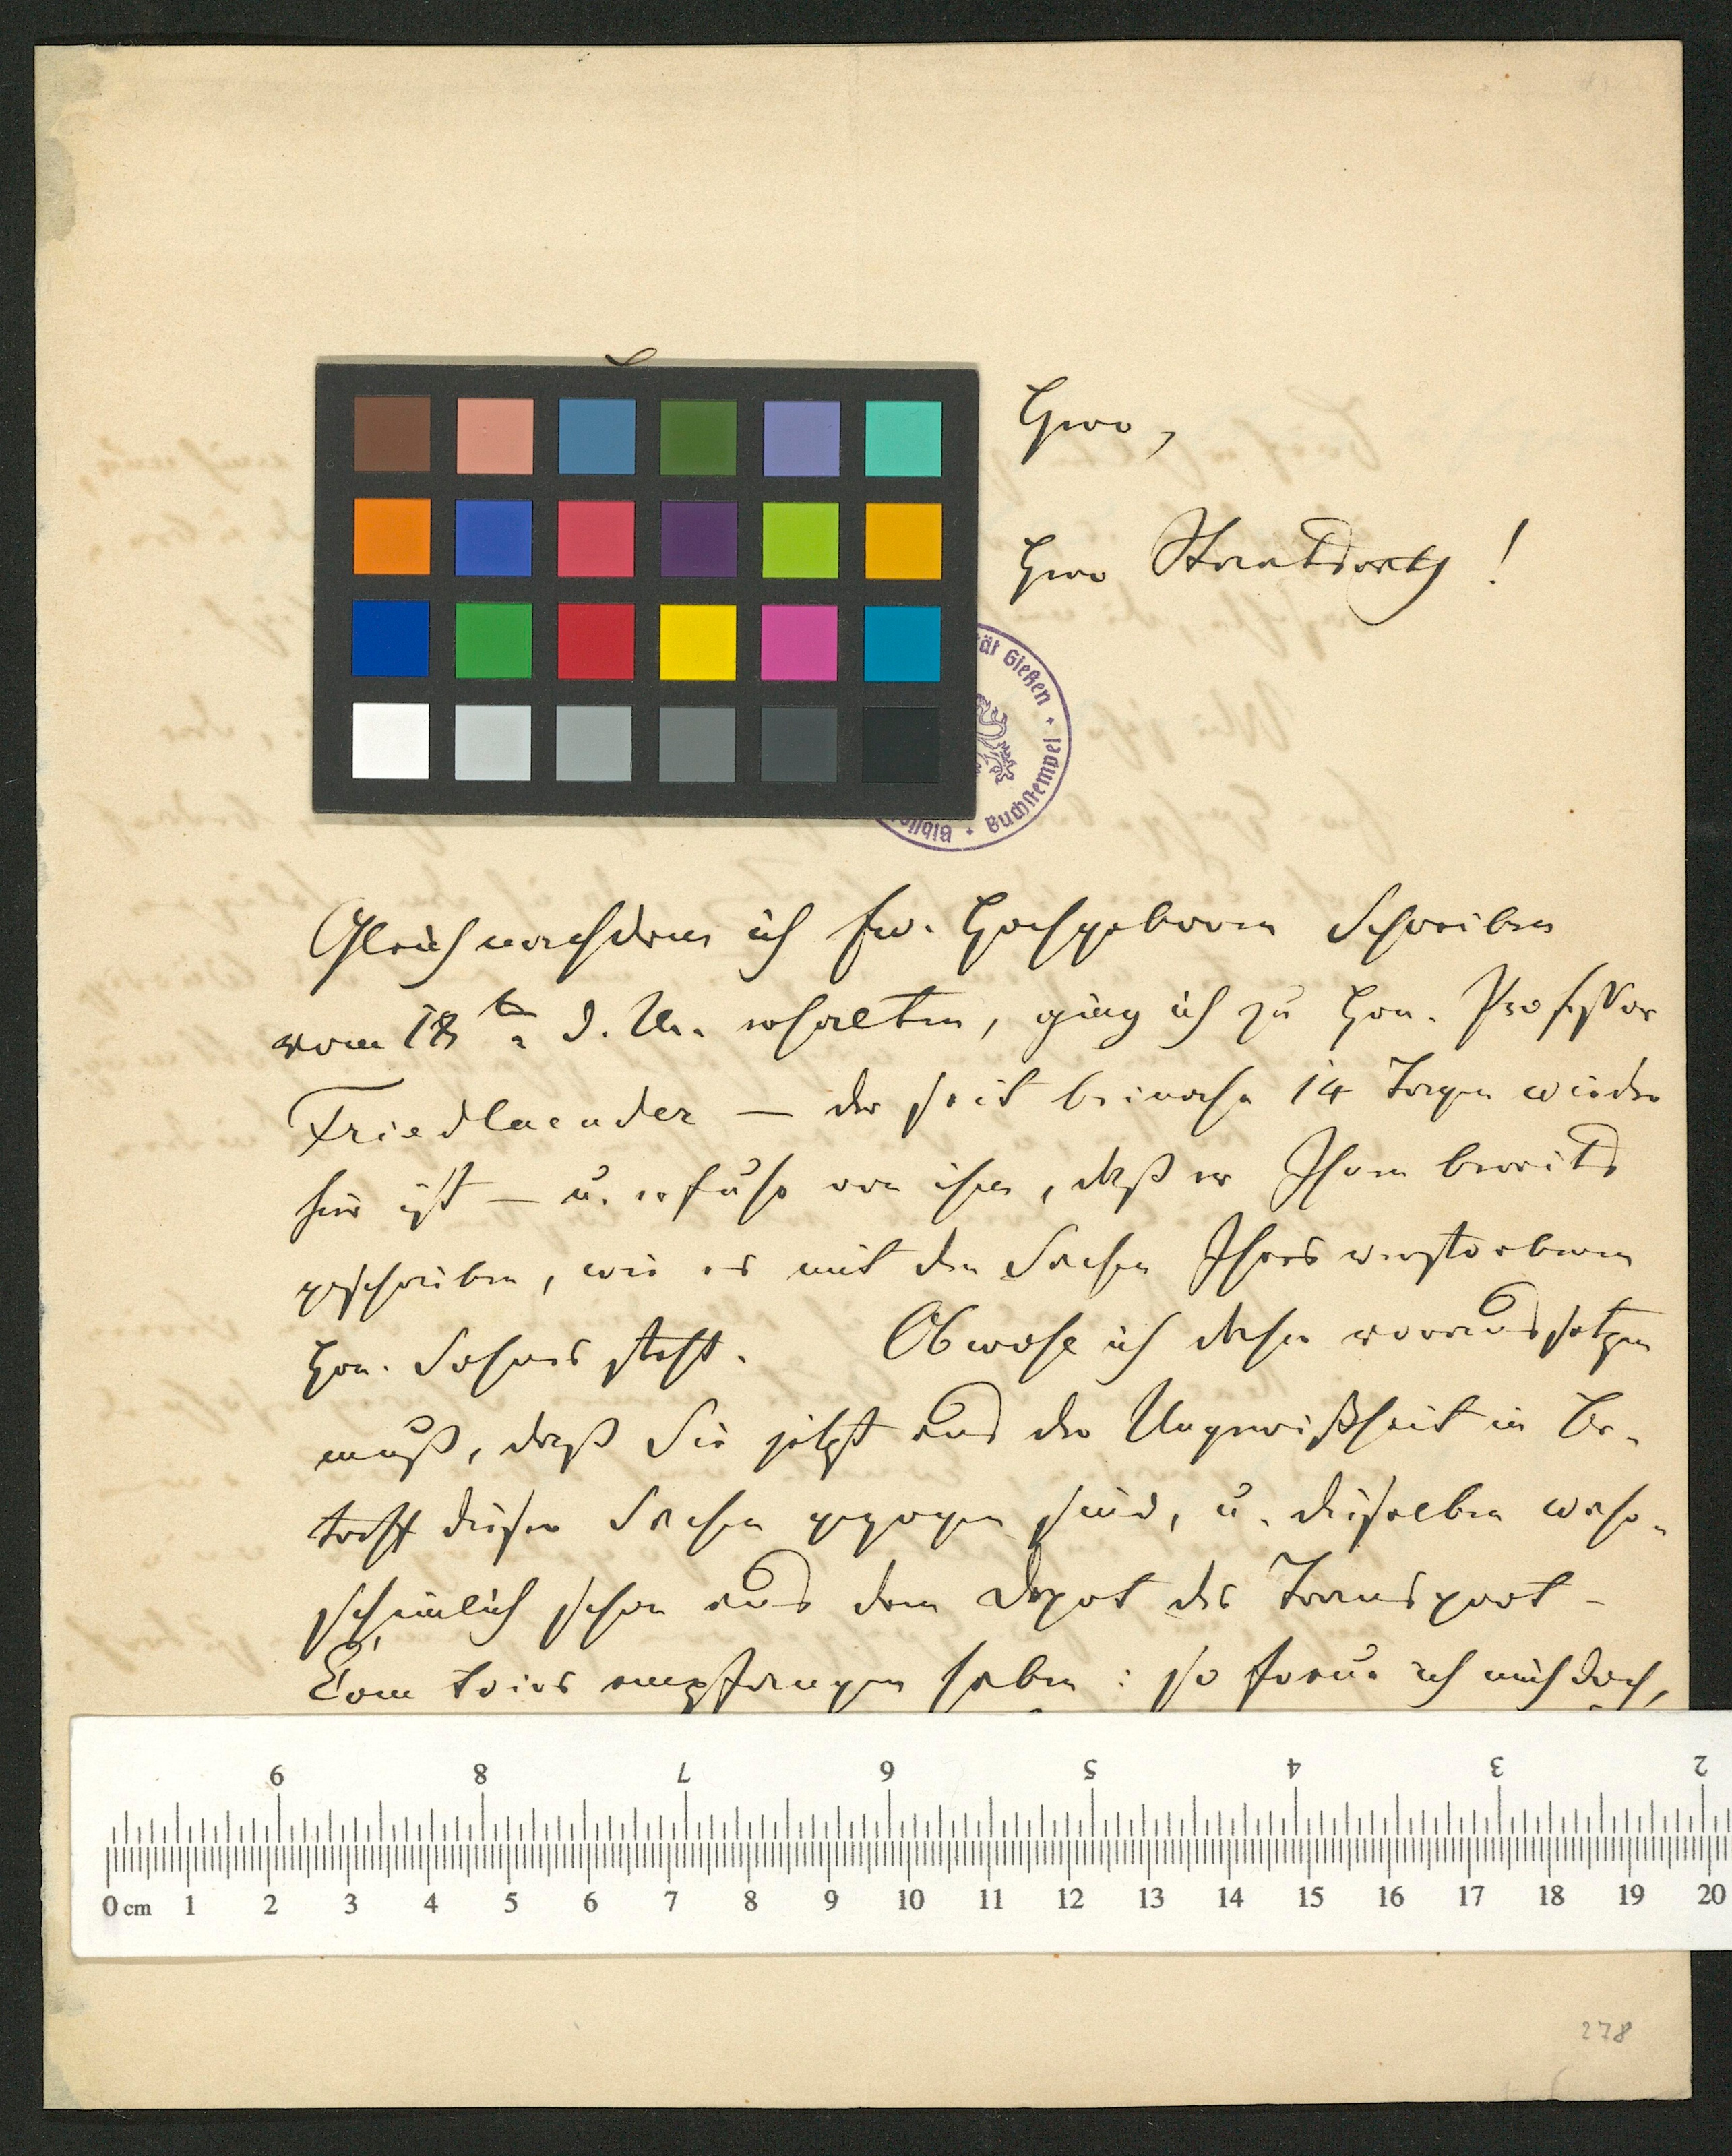 Herr,
Herr Staatsrath!
ät Gießen
Buchstempel
Biblio
Gleich nachdem ich Ew. Hochgeboren Schreiben
vom 18ten d. M. erhalten, ging ich zu Hrn. Professor
Friedlaender — der seit beinahe 14 Tagen wieder
hier ist — u. erfuhr von ihm, daß er Ihnen bereits
geschrieben, wie es mit den Sachen Ihres verstorbenen
Hrn. Sohnes steht. Obwohl ich daher voraussetzen
muß, daß Sie jetzt aus der Ungewißheit in Be-
treff dieser Sachen gezogen sind, u. dieselben wahr-
scheinlich schon aus dem Depot des Transport-
Comtoirs empfangen haben: so freue ich mich doch,
6 8 7 6 5 4 3 2
0 cm 1 2 3 4 5 6 7 8 9 10 11 12 13 14 15 16 17 18 19 20
278